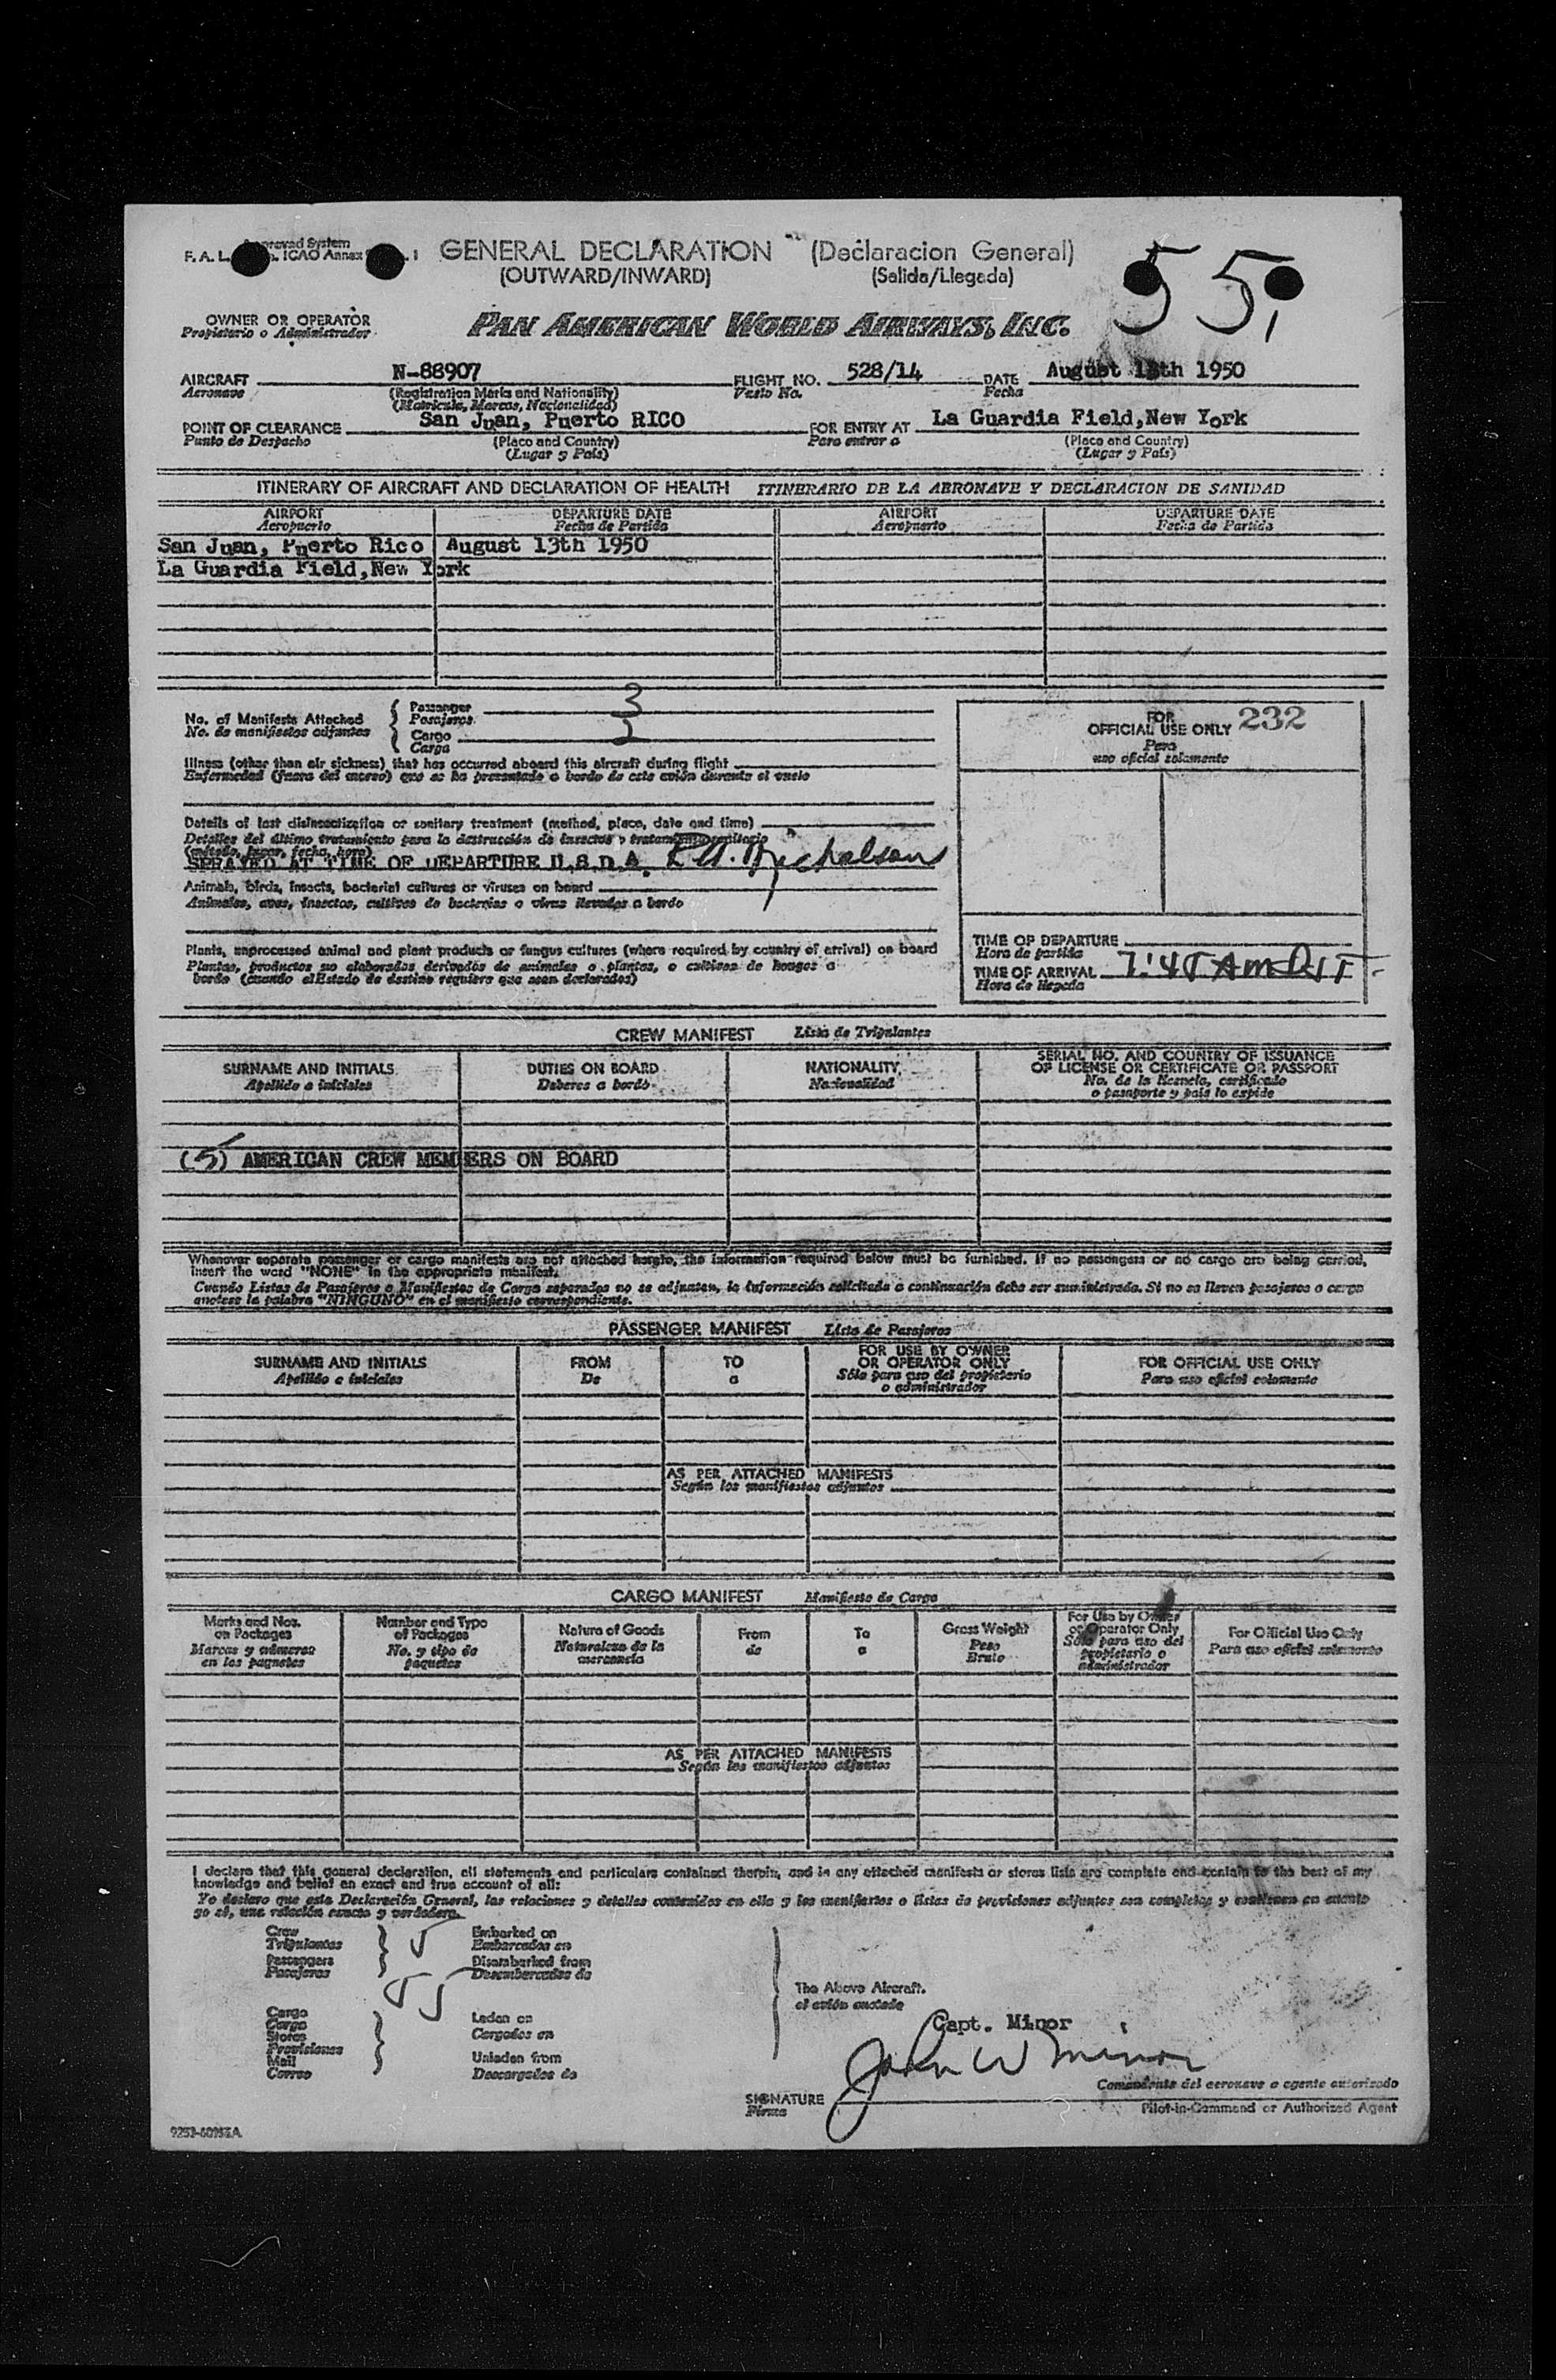 Approved System
F. A. L. ICAO Annex 1
GENERAL DECLARATION (Declaracion General)
(OUTWARD/INWARD) (Salida/Llegada)
55,
OWNER OR OPERATOR
Propietario o Administrador
PAN AMERICAN WORLD AIRWAYS, INC.
AIRCRAFT N-88907 FLIGHT NO. 528/14 DATE August 13th 1950
Aeronave (Registration Marks and Nationality) Vuelo No. Fecha
(Matricula, Marcas, Nacionalidad)
POINT OF CLEARANCE San Juan, Puerto RICO FOR ENTRY AT La Guardia Field,New York
Punto de Despacho (Place and Country) Para entrar a (Place and Country)
(Lugar y País) (Lugar y País)
ITINERARY OF AIRCRAFT AND DECLARATION OF HEALTH ITINERARIO DE LA AERONAVE Y DECLARACION DE SANIDAD
AIRPORT DEPARTURE DATE AIRPORT DEPARTURE DATE
Aeropuerto Fecha de Partida Aeropuerto Fecha de Partida
San Juan, Puerto Rico August 13th 1950
La Guardia Field,New York
No. of Manifests Attached Passenger 3
No. de manifiestos adjuntos Pasajeros
Cargo 2
Carga
FOR
OFFICIAL USE ONLY 232
Para
uso oficial solamente
Illness (other than air sickness) that has occurred aboard this aircraft during flight
Enfermedad (fuera del mareo) que se ha presentado a bordo de este avión durante el vuelo
Details of last disinsectization or sanitary treatment (method, place, date and time)
Detalles del último tratamiento para la destrucción de insectos o tratamiento sanitario
(método, lugar, fecha, hora)
SPRAYED AT TIME OF DEPARTURE U.S.D.A. Michalson
Animals, birds, insects, bacterial cultures or viruses on board
Animales, aves, insectos, cultivos de bacterias o virus llevados a bordo
Plants, unprocessed animal and plant products or fungus cultures (where required by country of arrival) on board
Plantas, productos no elaborados derivados de animales o plantas, o cultivos de hongos a
bordo (cuando el Estado de destino requiera que sean declarados)
TIME OF DEPARTURE
Hora de partida
TIME OF ARRIVAL 7:45 AM DST
Hora de llegada
CREW MANIFEST Lista de Tripulantes
SURNAME AND INITIALS DUTIES ON BOARD NATIONALITY SERIAL NO. AND COUNTRY OF ISSUANCE
OF LICENSE OR CERTIFICATE OR PASSPORT
Apellido e iniciales Deberes a bordo Nacionalidad No. de la licencia, certificado
o pasaporte y país lo expide
(5) AMERICAN CREW MEMBERS ON BOARD
Whenever separate passenger or cargo manifests are not attached hereto, the information required below must be furnished. If no passengers or no cargo are being carried,
insert the word "NONE" in the appropriate manifest.
Cuando Listas de Pasajeros o Manifiestos de Carga separados no se adjunten, la información solicitada a continuación debe ser suministrada. Si no se lleven pasajeros o carga
anotese la palabra "NINGUNO" en el manifiesto correspondiente.
PASSENGER MANIFEST Lista de Pasajeros
SURNAME AND INITIALS FROM TO FOR USE BY OWNER
OR OPERATOR ONLY FOR OFFICIAL USE ONLY
Apellido e iniciales De a Sólo para uso del propietario
o administrador Para uso oficial solamente
AS PER ATTACHED MANIFESTS
Según los manifiestos adjuntos
CARGO MANIFEST Manifiesto de Carga
Marks and Nos.
on Packages
Marcas y números
en los paquetes
Number and Type
of Packages
No. y tipo de
paquetes
Nature of Goods
Naturaleza de la
mercancía
From
de
To
a
Gross Weight
Peso
Bruto
For Use by Owner
or Operator Only
Sólo para uso del
propietario o
administrador
For Official Use Only
Para uso oficial solamente
AS PER ATTACHED MANIFESTS
Según los manifiestos adjuntos
I declare that this general declaration, all statements and particulars contained therein, and in any attached manifests or stores lists are complete and contain to the best of my
knowledge and belief an exact and true account of all:
Yo declaro que esta Declaración General, las relaciones y detalles contenidos en ella y los manifiestos o listas de provisiones adjuntos son completos y contienen en cuanto
yo sé, una relación exacta y verdadera.
Crew 5 Embarked on
Tripulantes Embarcados en
Passengers 55 Disembarked from
Pasajeros Desembarcados de
The Above Aircraft.
el avión anotado
Cargo Laden on
Carga Cargados en
Stores
Provisiones
Mail Unladen from
Correo Descargados de
Capt. Minor
John W Minor
Comandante del aeronave o agente autorizado
SIGNATURE
Firma
Pilot-in-Command or Authorized Agent